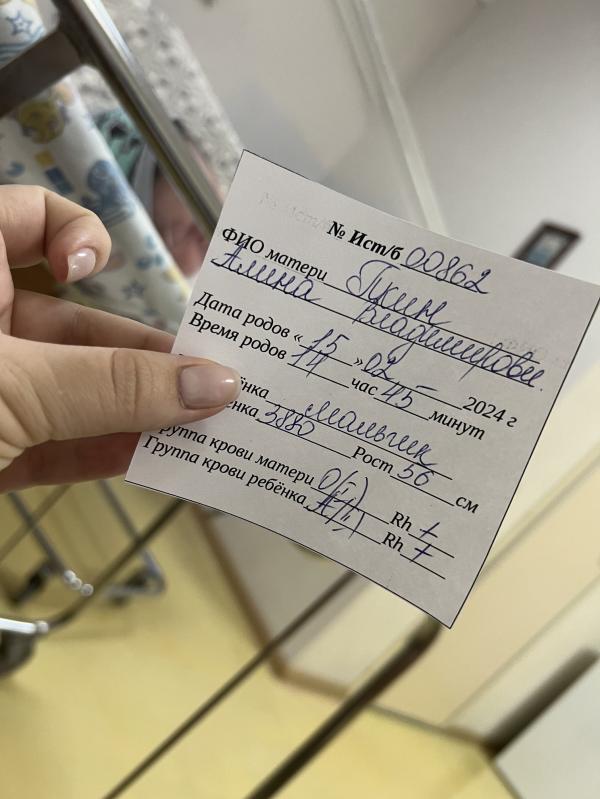 № Ист/б 00862
ФИО матери Пкин
Алина Владимировн.
Дата родов « 15 » 02 2024 г
Время родов 14 час 45 минут
ёнка мальчик
ёнка 3880 Рост 56 см
руппа крови матери 0(I) Rh +
Группа крови ребёнка A(II) Rh +